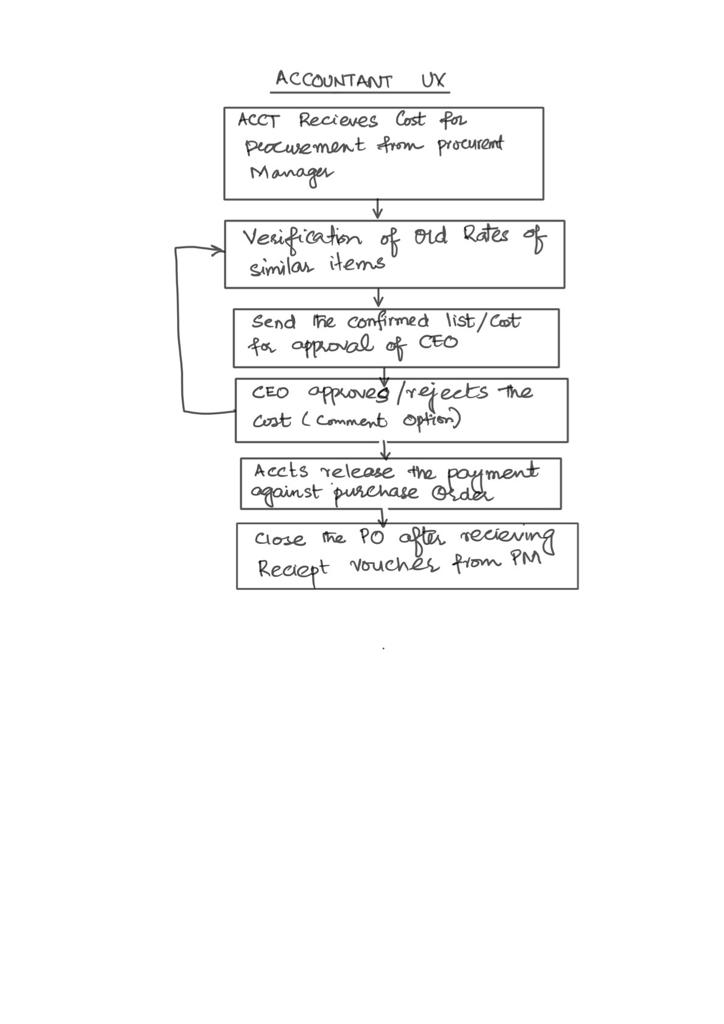 ACCOUNTANT UX
ACCT Recieves Cost for
procurement from procurent
Manager
Verification of Old Rates of
similar items
Send the confirmed list/Cost
for approval of CEO
CEO approves/rejects the
Cost (Comment Option)
Accts release the payment
against purchase Order
Close the PO after recieving
Reciept voucher from PM